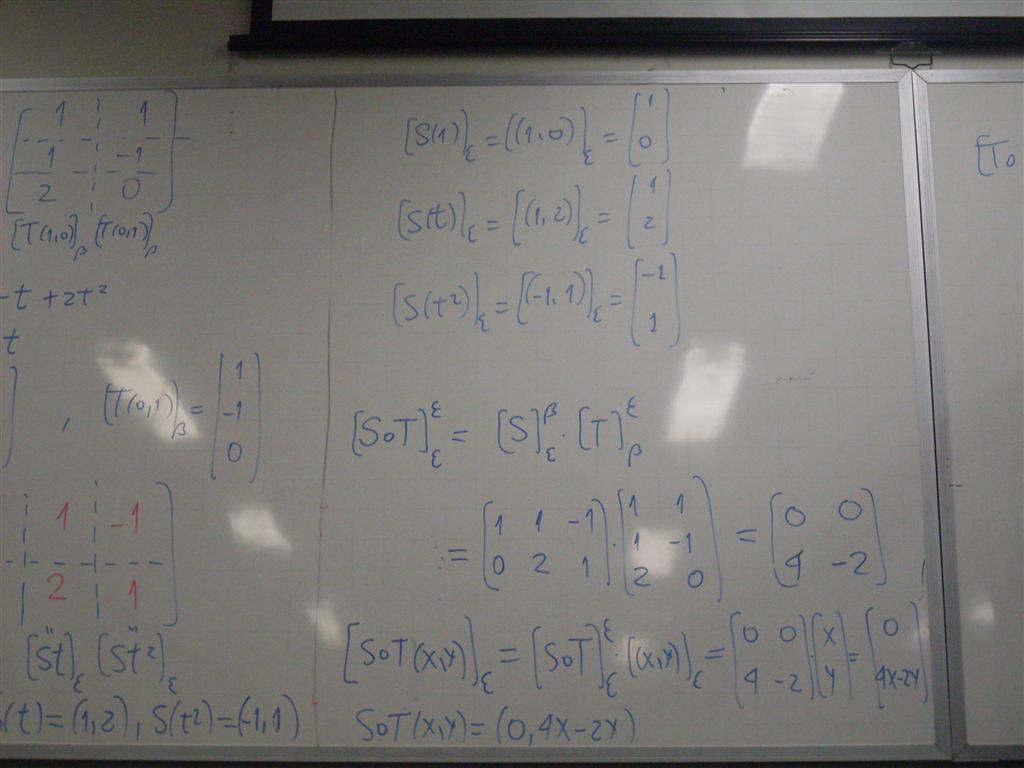 1 1
1 -1
2 0
[T(1,0)]β [T(0,1)]β
-t + 2t²
t
, [T(0,1)]β = [1 -1 0]
1 -1
2 1
["St"]ε ["St²"]ε
S(t) = (1,2), S(t²) = (-1,1)
[S(1)]ε = [(1,0)]ε = [1 0]
[S(t)]ε = [(1,2)]ε = [1 2]
[S(t²)]ε = [(-1,1)]ε = [-1 1]
[SoT]^ε_ε = [S]^β_ε · [T]^ε_β
= [1 1 -1; 0 2 1] · [1 1; 1 -1; 2 0] = [0 0; 4 -2]
[SoT(x,y)]ε = [SoT]^ε_ε · [(x,y)]ε = [0 0; 4 -2] · [x; y] = [0; 4x-2y]
SoT(x,y) = (0, 4x-2y)
[To